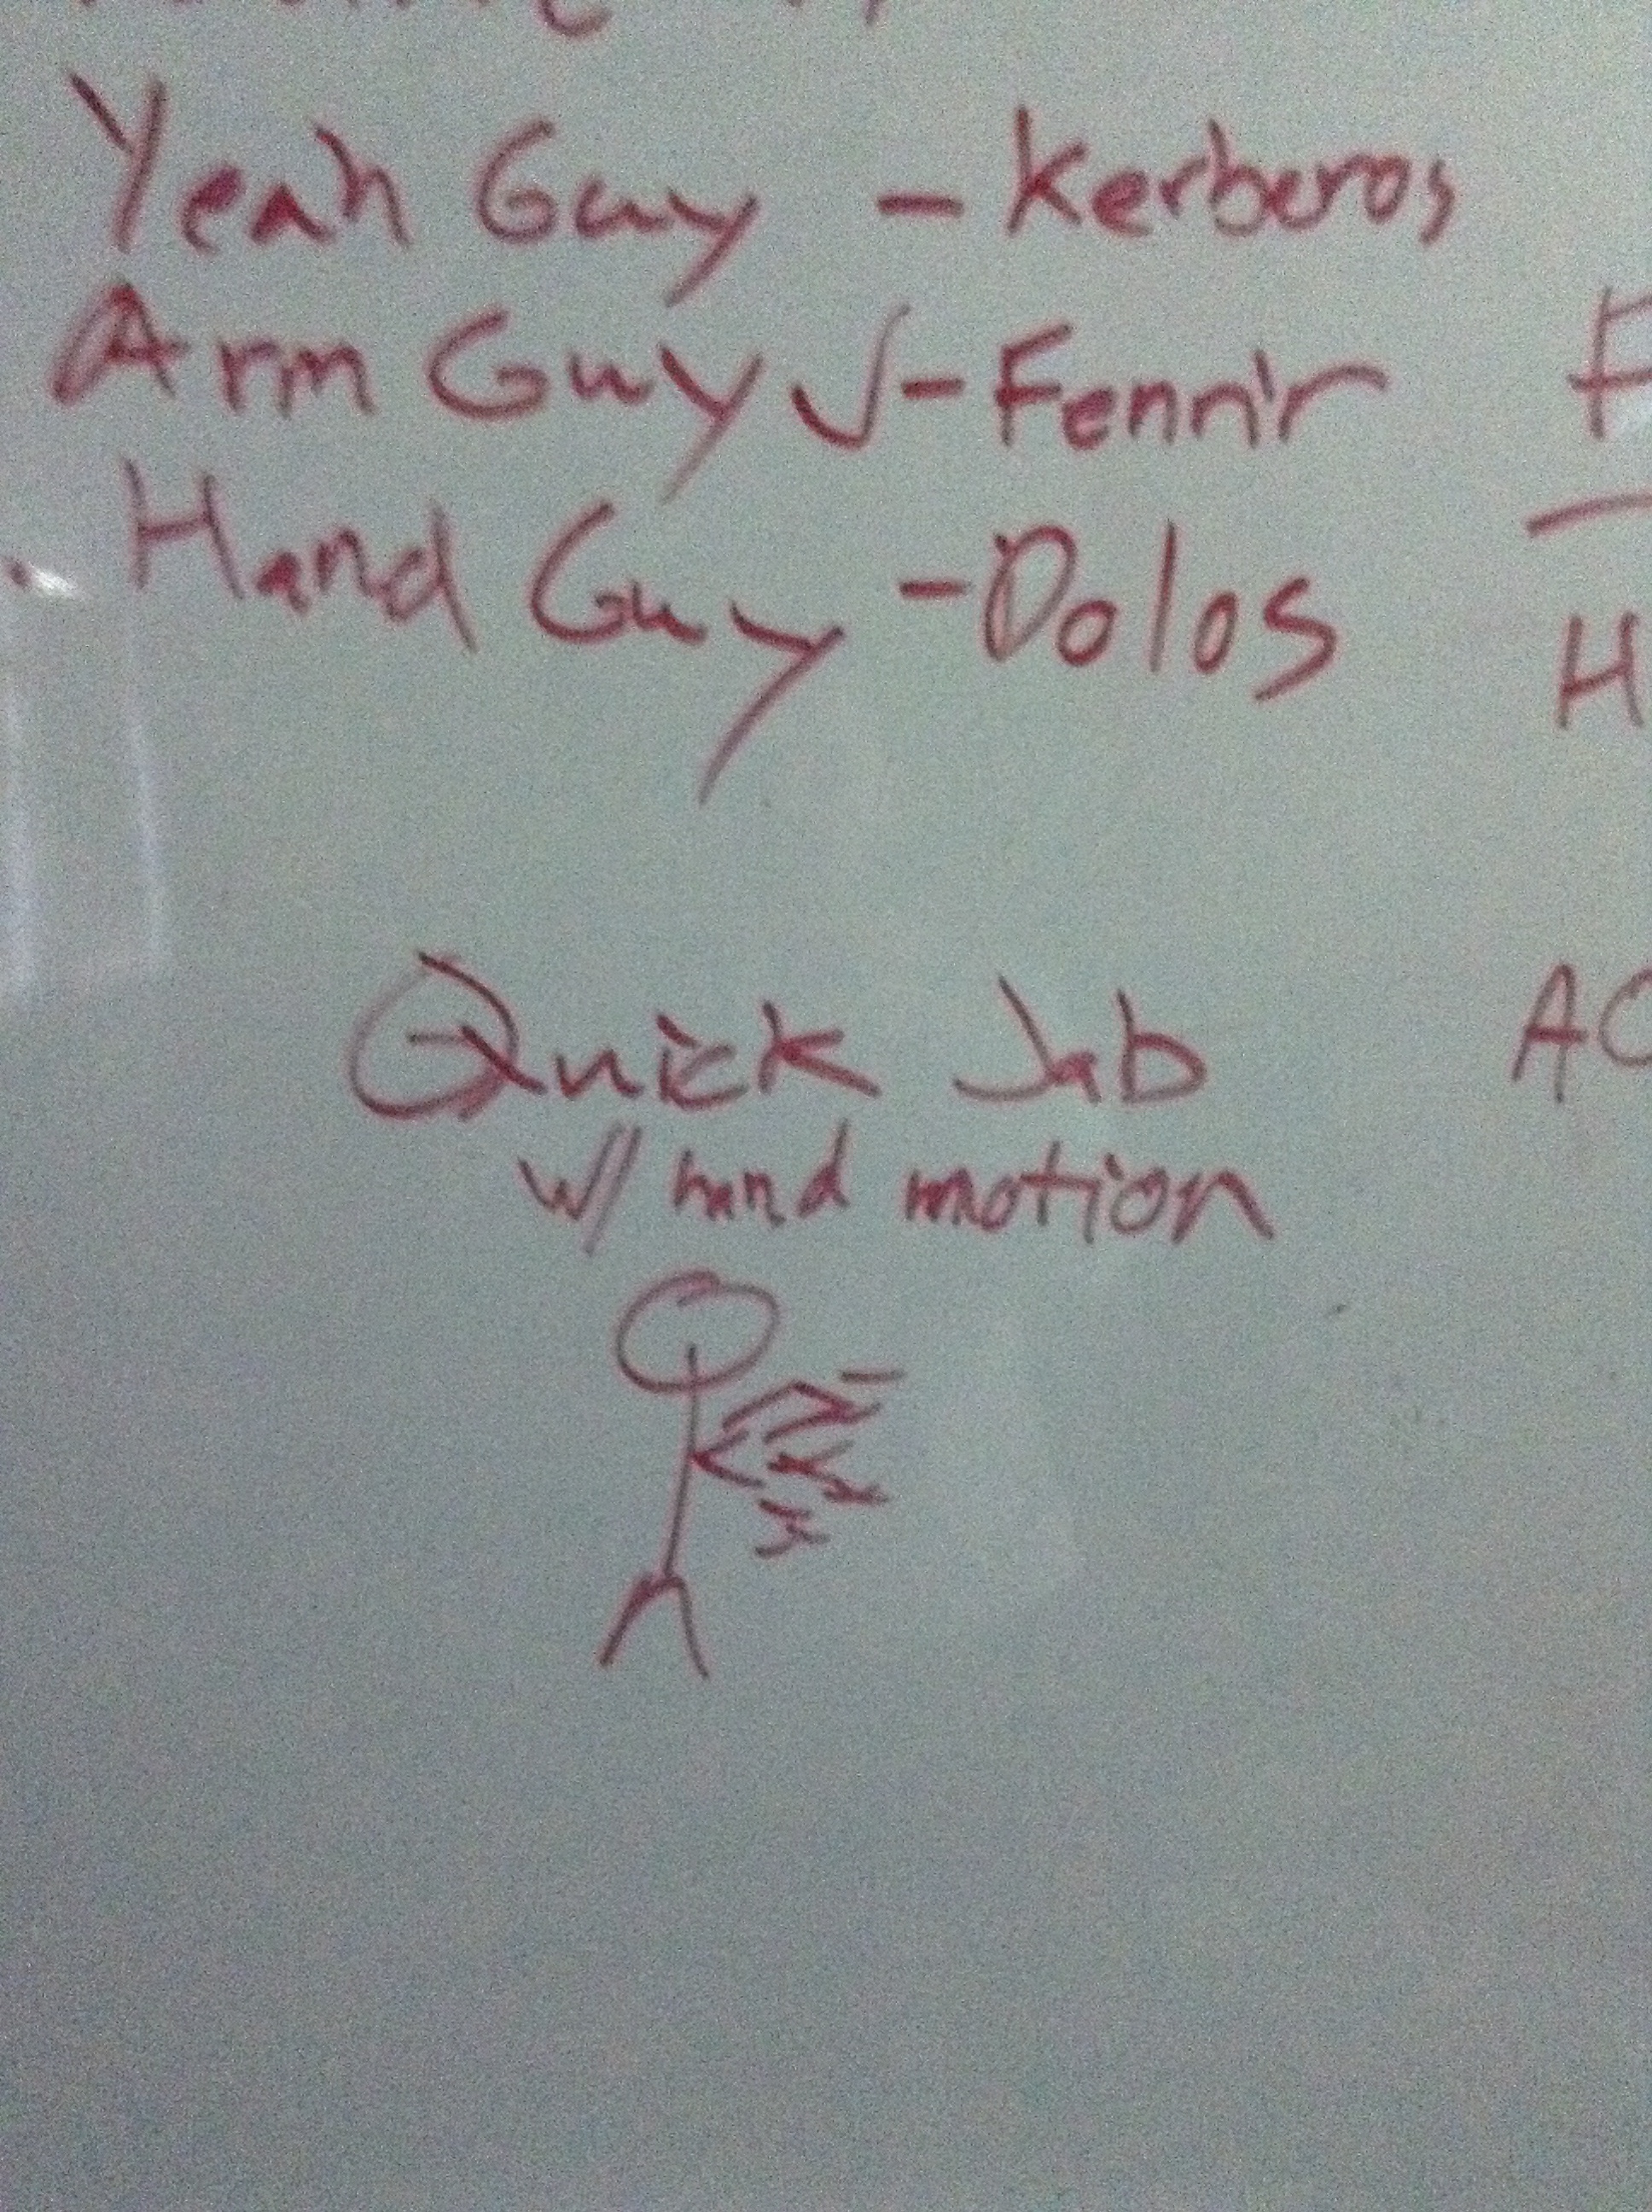 Yeah Guy - Kerberos
Arm Guy √ - Fenrir
Hand Guy - Dolos
H
AC
Quick Jab
w/ hand motion